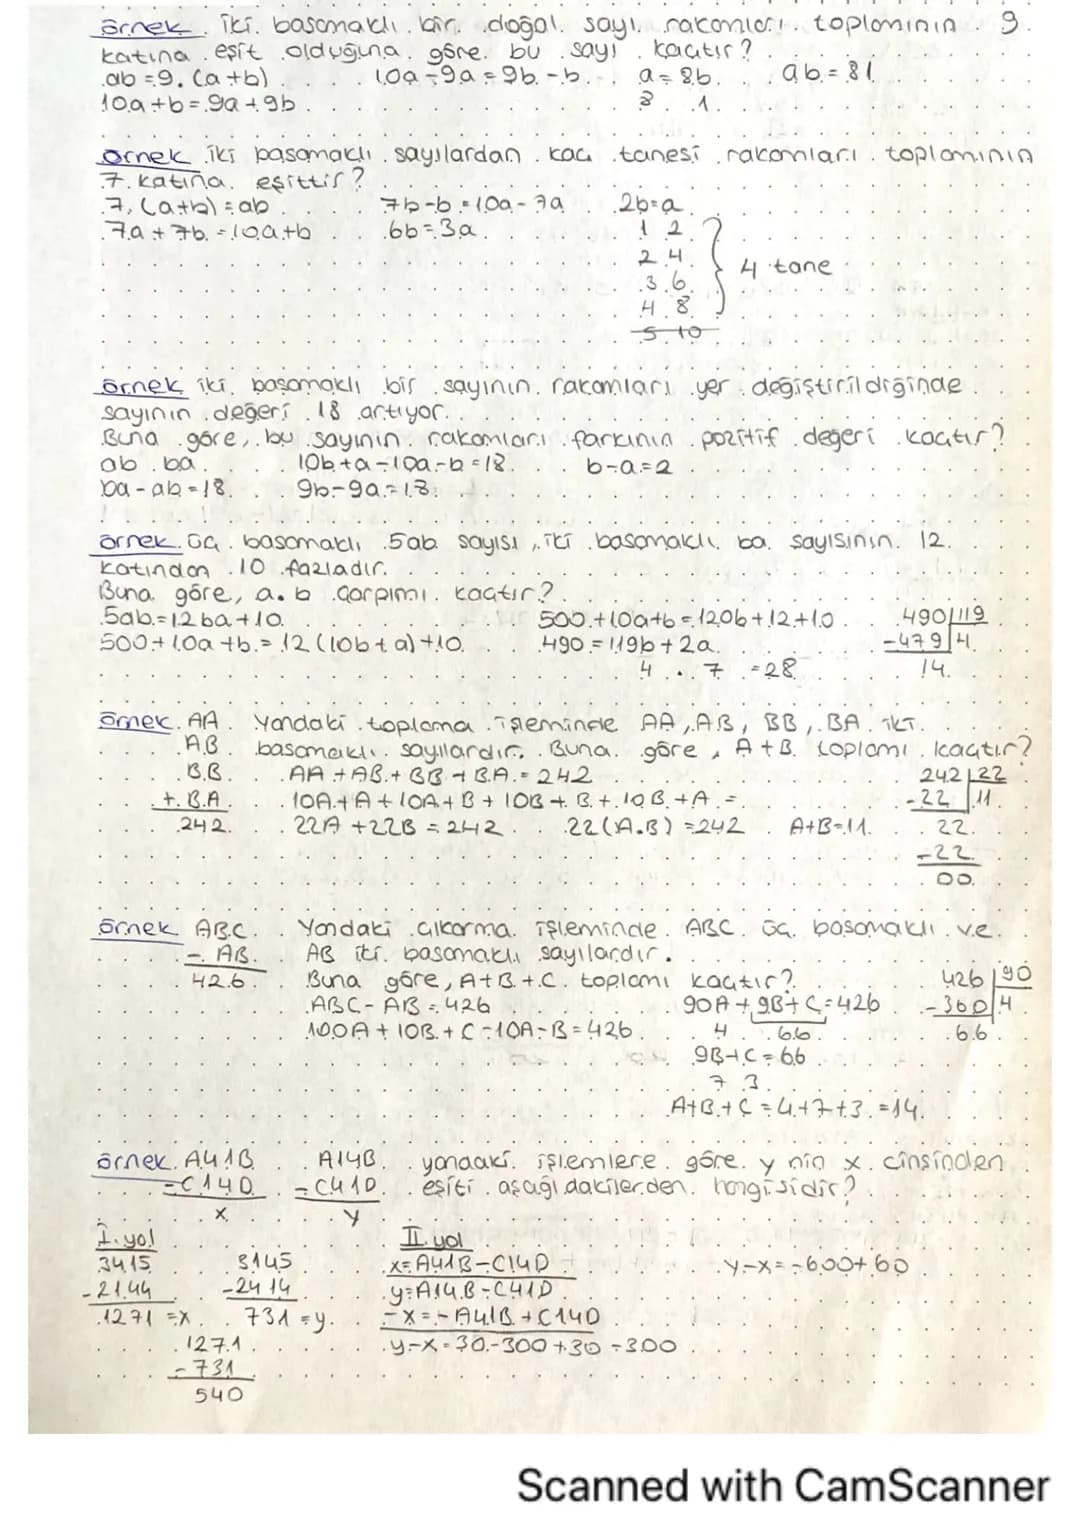 örnek. İki basamaklı bir doğal sayı rakamları toplamının 9
katına eşit olduğuna göre bu sayı kaçtır?
ab = 9.(a+b) 10a-9a = 9b-b a = 8b ab = 81
10a+b = 9a+9b 8 1
örnek iki basamaklı sayılardan kaç tanesi rakamları toplamının
7 katına eşittir?
7.(a+b) = ab 7b-b = 10a-7a 2b=a
7a+7b = 10a+b 6b=3a 1 2
2 4
3 6
4 8
4 tane
5 10
örnek iki basamaklı bir sayının rakamları yer değiştirildiğinde
sayının değeri 18 artıyor.
Buna göre, bu sayının rakamları farkının pozitif değeri kaçtır?
ab ba 10b+a-10a-b=18 b-a=2
ba-ab=18 9b-9a=18
örnek. üç basamaklı 5ab sayısı, iki basamaklı ba sayısının 12
katından 10 fazladır.
Buna göre, a.b çarpımı kaçtır?
5ab=12ba+10 500+10a+b=120b+12+10 490 119
500+10a+b=12(10b+a)+10 490=119b+2a -479 4
4 . 7 =28 14
örnek. AA Yandaki toplama işleminde AA, AB, BB, BA iki
AB basamaklı sayılardır. Buna göre, A+B toplamı kaçtır?
BB AA+AB+BB+BA=242 242 22
+ BA 10A+A+10A+B+10B+B+10B+A= -22 11
242 22A+22B=242 22(A.B)=242 A+B=11 22
-22
00
örnek ABC Yandaki çıkarma işleminde ABC üç basamaklı ve
- AB AB iki basamaklı sayılardır.
426 Buna göre, A+B+C toplamı kaçtır? 426 90
ABC-AB=426 90A+9B+C=426 -360 4
100A+10B+C-10A-B=426 4 66 66
9B+C=66
7 3
A+B+C=4+7+3=14
örnek. A41B A14B yandaki işlemlere göre y nin x cinsinden
-C14D -C41D eşiti aşağıdakilerden hangisidir?
x y
I. yol II. yol
3415 3145 x=A41B-C14D y-x=-600+60
-2144 -2414 y=A14B-C41D
1271=x 731=y -x=-A41B+C14D
1271 y-x=30-300+30-300
-731
540
Scanned with CamScanner